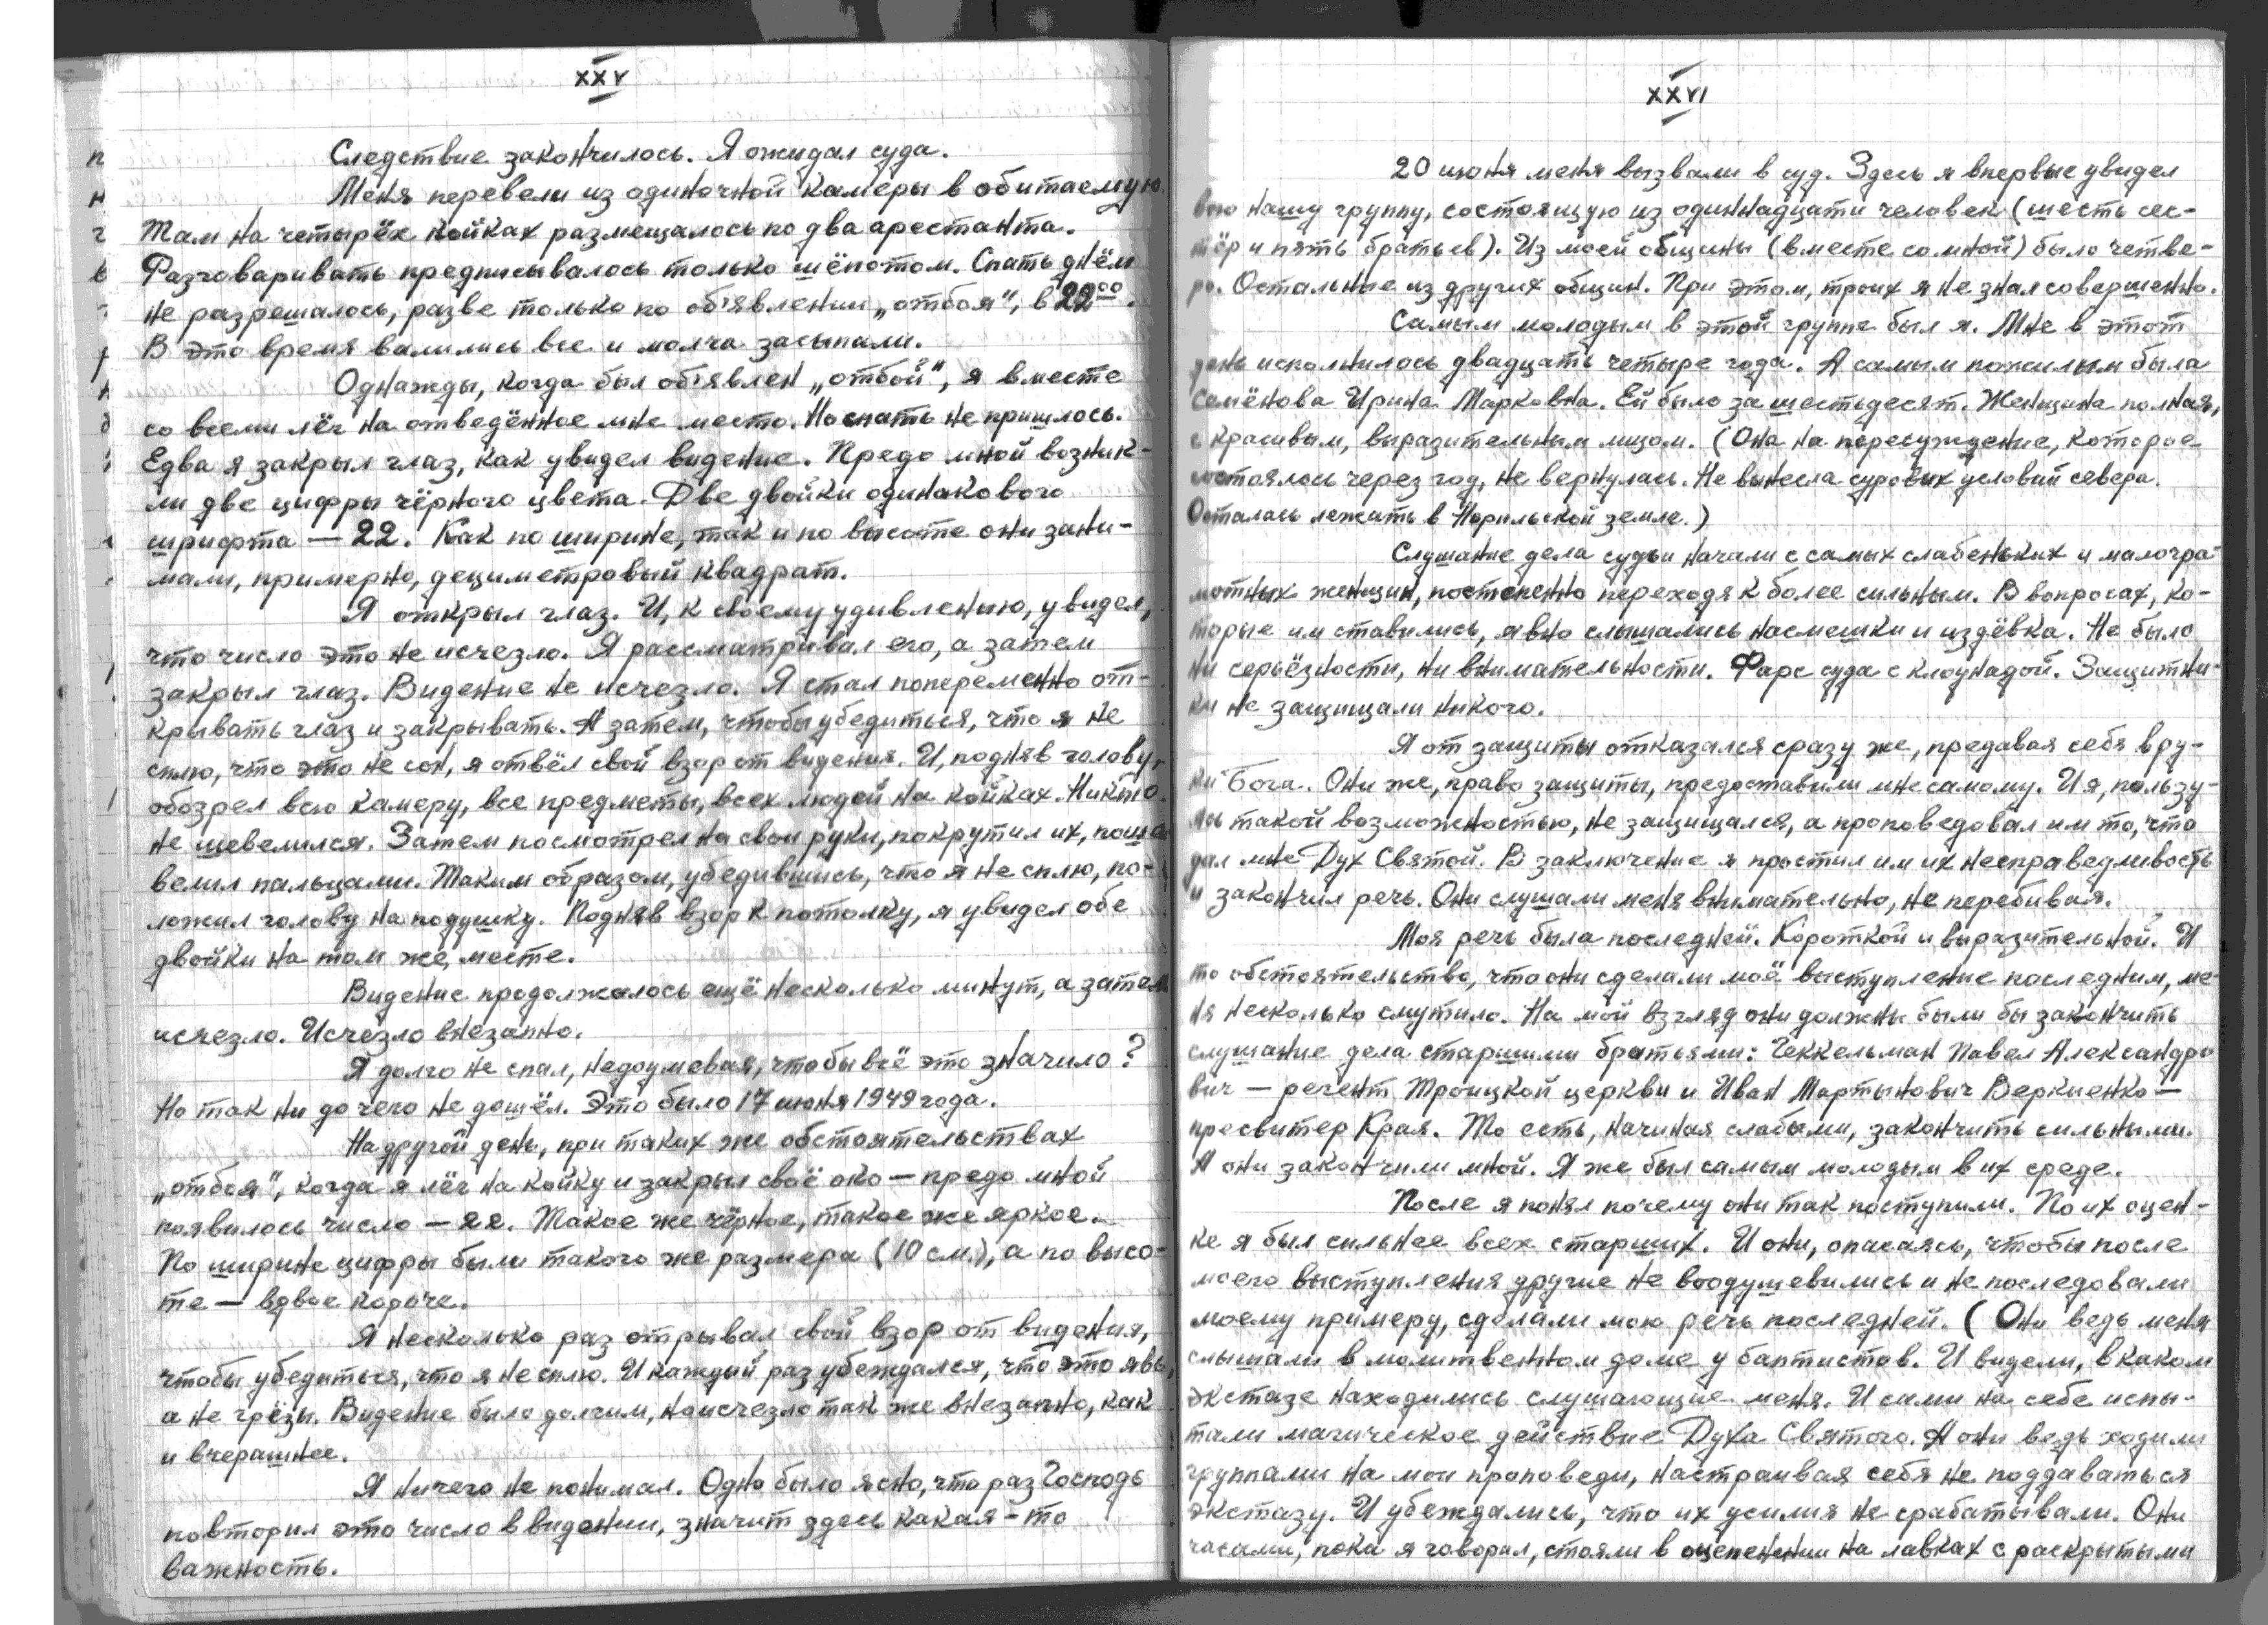 XXV
Следствие закончилось. Я ожидал суда.
Меня перевели из одиночной камеры в обитаемую.
Там на четырёх койках размещалось по два арестанта.
Разговаривать предписывалось только шёпотом. Спать днём
не разрешалось, разве только по об'явлении „отбоя", в 22⁰⁰.
В это время валились все и молча засыпали.
Однажды, когда был об'явлен „отбой", я вместе
со всеми лёг на отведённое мне место. Но спать не пришлось.
Едва я закрыл глаз, как увидел видение. Предо мной возник-
ли две цифры чёрного цвета. Две двойки одинакового
шрифта — 22. Как по ширине, так и по высоте они зани-
мали, примерно, дециметровый квадрат.
Я открыл глаз. И, к своему удивлению, увидел,
что число это не исчезло. Я рассматривал его, а затем
закрыл глаз. Видение не исчезло. Я стал попеременно от-
крывать глаз и закрывать. А затем, чтобы убедиться, что я не
сплю, что это не сон, я отвёл свой взор от видения. И, подняв голову,
обозрел всю камеру, все предметы, всех людей на койках. Никто
не шевелился. Затем посмотрел на свои руки, покрутил их, поше
велил пальцами. Таким образом, убедившись, что я не сплю, по-
ложил голову на подушку. Подняв взор к потолку, я увидел обе
двойки на том же месте.
Видение продолжалось ещё несколько минут, а затем
исчезло. Исчезло внезапно.
Я долго не спал, недоумевая, что бы всё это значило?
Но так ни до чего не дошёл. Это было 17 июня 1949 года.
На другой день, при таких же обстоятельствах
„отбоя", когда я лёг на койку и закрыл своё око — предо мной
появилось число — 22. Такое же чёрное, такое же яркое.
По ширине цифры были такого же размера (10 см.), а по высо-
те — вдвое короче.
Я несколько раз отрывал свой взор от видения,
чтобы убедиться, что я не сплю. И каждый раз убеждался, что это явь,
а не грёзы. Видение было долгим, но исчезло так же внезапно, как
и вчерашнее.
Я ничего не понимал. Одно было ясно, что раз Господь
повторил это число в видении, значит здесь какая-то
важность.
XXVI
20 июня меня вызвали в суд. Здесь я впервые увидел
всю нашу группу, состоящую из одиннадцати человек (шесть сес-
тёр и пять братьев). Из моей общины (вместе со мной) было четве-
ро. Остальные из других общин. При этом, троих я не знал совершенно.
Самым молодым в этой группе был я. Мне в этот
день исполнилось двадцать четыре года. А самым пожилым была
Семёнова Ирина Марковна. Ей было за шестьдесят. Женщина полная,
с красивым, выразительным лицом. (Она на пересуждение, которое
состоялось через год, не вернулась. Не вынесла суровых условий севера.
Осталась лежать в Норильской земле.)
Слушание дела судьи начали с самых слабеньких и малогра-
мотных женщин, постепенно переходя к более сильным. В вопросах, ко-
торые им ставились, явно слышались насмешки и издёвка. Не было
ни серьёзности, ни внимательности. Фарс суда с клоунадой. Защитни-
ки не защищали никого.
Я от защиты отказался сразу же, предавая себя в ру-
ки Бога. Они же, право защиты, предоставили мне самому. И я, пользу-
ясь такой возможностью, не защищался, а проповедовал им то, что
дал мне Дух Святой. В заключение я простил им их несправедливость
и закончил речь. Они слушали меня внимательно, не перебивая.
Моя речь была последней. Короткой и выразительной. И
то обстоятельство, что они сделали моё выступление последним, ме-
ня несколько смутило. На мой взгляд они должны были бы закончить
слушание дела старшими братьями: Геккельман Павел Александро
вич — регент Троицкой церкви и Иван Мартынович Веркиенко —
пресвитер Края. То есть, начиная слабыми, закончить сильными.
А они закончили мной. Я же был самым молодым в их среде.
После я понял почему они так поступили. По их оцен-
ке я был сильнее всех старших. И они, опасаясь, чтобы после
моего выступления другие не воодушевились и не последовали
моему примеру, сделали мою речь последней. (Они ведь меня
слышали в молитвенном доме у баптистов. И видели, в каком
экстазе находились слушающие меня. И сами на себе испы-
тали магическое действие Духа Святого. А они ведь ходили
группами на мои проповеди, настраивая себя не поддаваться
экстазу. И убеждались, что их усилия не срабатывали. Они
часами, пока я говорил, стояли в оцепенении на лавках с раскрытыми